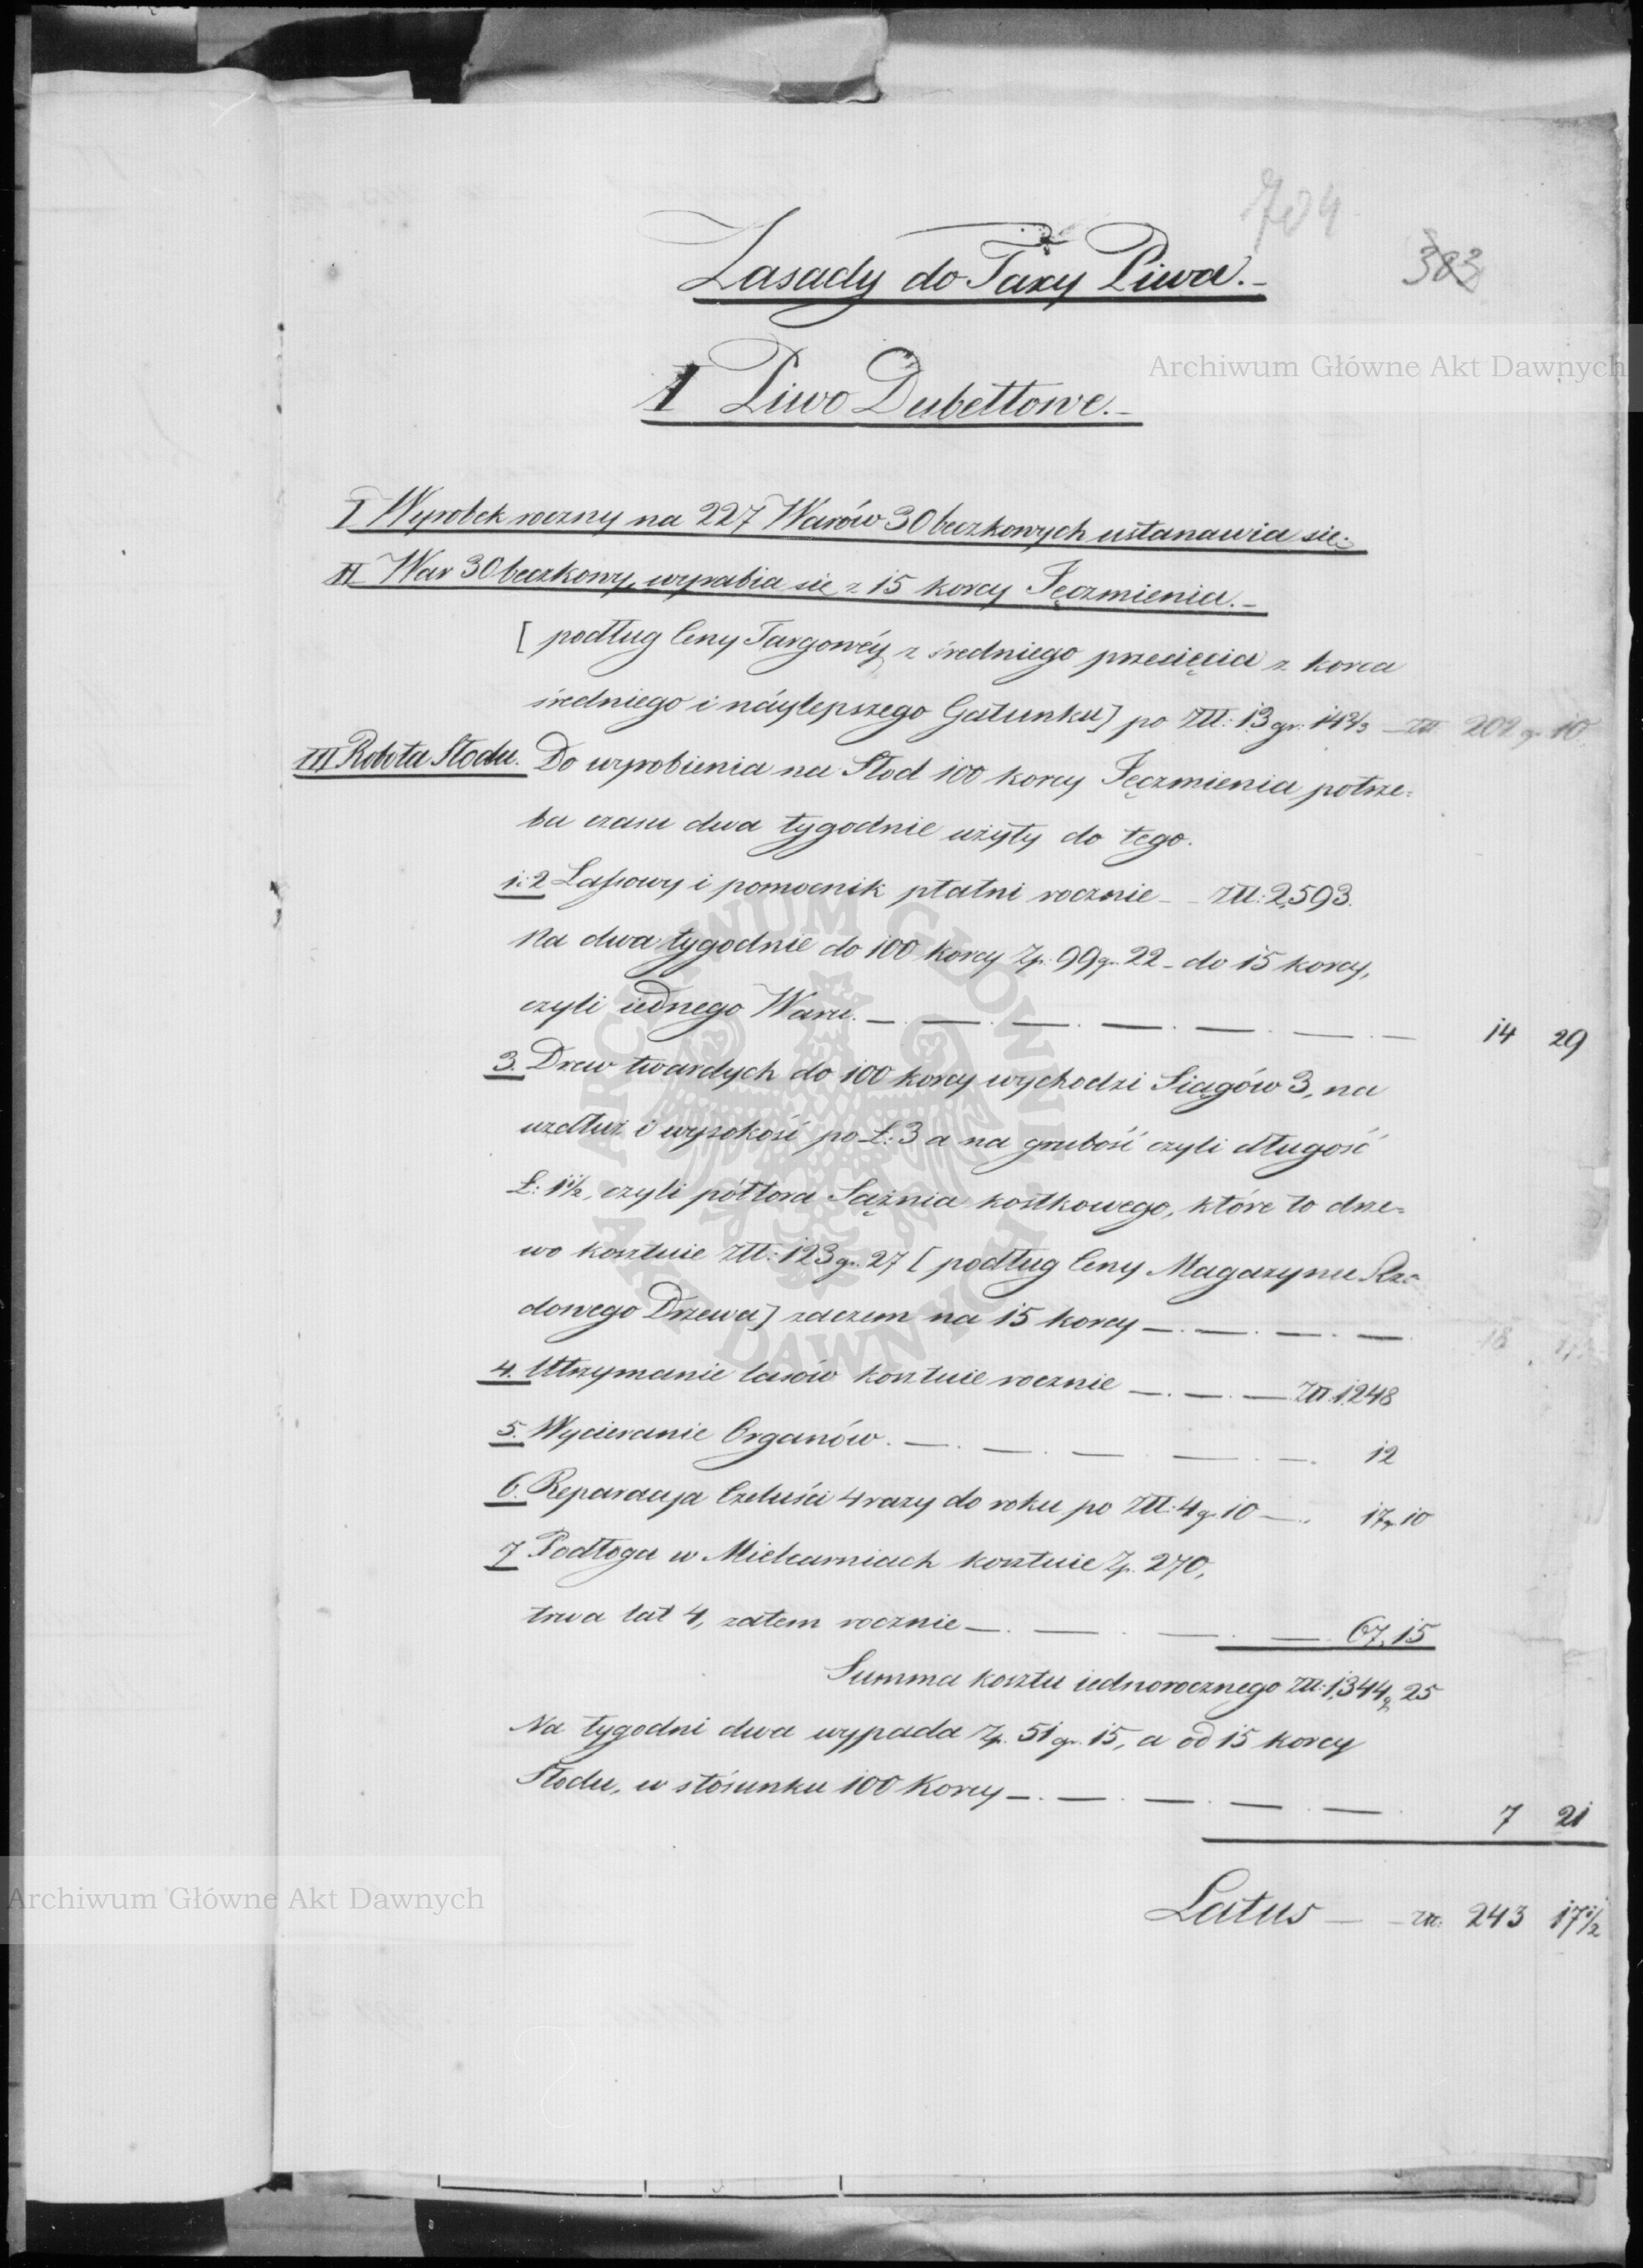 704
303
Zasady do Taxy Piwa.-
I Piwo Dubeltowe.-
Archiwum Główne Akt Dawnych
I Wyrobek roczny na 227 Warów 30 beczkowych ustanawia się.
II War 30 beczkowy, wyrabia się z 15 korcy Jęczmienia.-
[podług Ceny Targowéy z średniego przecięcia z korca
średniego i náylepszego Gatunku] po Złł: 13 gr. 14 2/3 - Złł 202 gr 10
III Robota Słodu. Do wyrobienia na Słod 100 korcy Jęczmienia potrze=
ba czasu dwa tygodnie użyty do tego.
1:2 Lassowy i pomocnik płatni rocznie - - Złł: 2,593.
Na dwa tygodnie do 100 korcy Zp. 99 gr. 22 - do 15 korcy,
czyli iednego Waru. - - - - - - - 14 29
3. Drew twardych do 100 korcy wychodzi Siągów 3, na
wzdłuż i wysokość po Ł: 3 a na grubość czyli długość
Ł: 1 1/2, czyli półtora Sążnia kostkowego, które to drze=
wo kosztuie Złł: 123 gr. 27 [podług Ceny Magazynu Rzą=
dowego Drzewa] zaczem na 15 korcy - - - - 18 17
4. Utrzymanie lasów kosztuie rocznie - - - Złł. 1248
5. Wycieranie Organów. - - - - - 12
6. Reparacyja Czeluści 4 razy do roku po Złł: 4 gr. 10 - 17 gr 10
7 Podłoga w Mielcarniach kosztuie Zp. 270,
trwa lat 4, zatem rocznie - - - - 67, 15
Summa kosztu iednorocznego Złł: 1,344 gr 25
Na tygodni dwa wypada Zp. 51 gr. 15, a od 15 korcy
Słodu, w stósunku 100 Korcy - - - - - 7 21
Latus - - Złł: 243 17 1/2
Archiwum Główne Akt Dawnych
ARCHIWUM GŁÓWNE AKT DAWNYCH